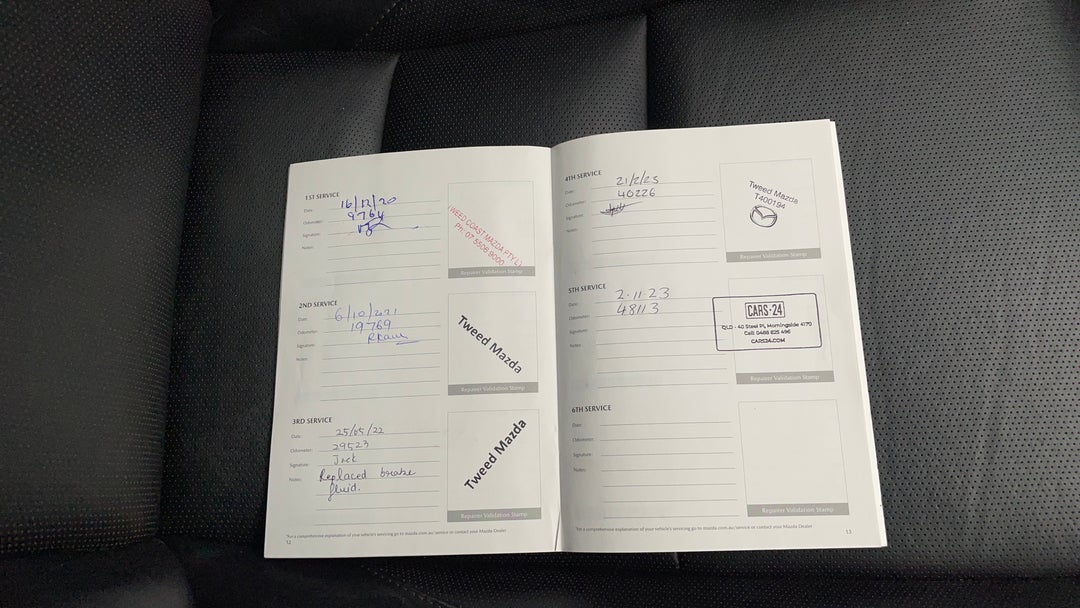 1ST SERVICE
Date: 16/12/20
Odometer: 9764
Signature:
Notes:
TWEED COAST MAZDA PTY L
Ph: 07 5506 9000
Repairer Validation Stamp
2ND SERVICE
Date: 6/10/2021
Odometer: 19769
Signature:
Notes:
Tweed Mazda
Repairer Validation Stamp
3RD SERVICE
Date: 25/05/22
Odometer: 29523
Signature: Jack
Notes: Replaced brake
fluid.
Tweed Mazda
Repairer Validation Stamp
*For a comprehensive explanation of your vehicle's servicing go to mazda.com.au/service or contact your Mazda Dealer
12
4TH SERVICE
Date: 21/2/23
Odometer: 40226
Signature:
Notes:
Tweed Mazda
T400194
Repairer Validation Stamp
5TH SERVICE
Date: 2.11.23
Odometer: 48113
Signature:
Notes:
CARS·24
QLD - 40 Steel Pl, Morningside 4170
Call 0488 825 496
CARS24.COM
Repairer Validation Stamp
6TH SERVICE
Date:
Odometer:
Signature:
Notes:
Repairer Validation Stamp
*For a comprehensive explanation of your vehicle's servicing go to mazda.com.au/service or contact your Mazda Dealer
13